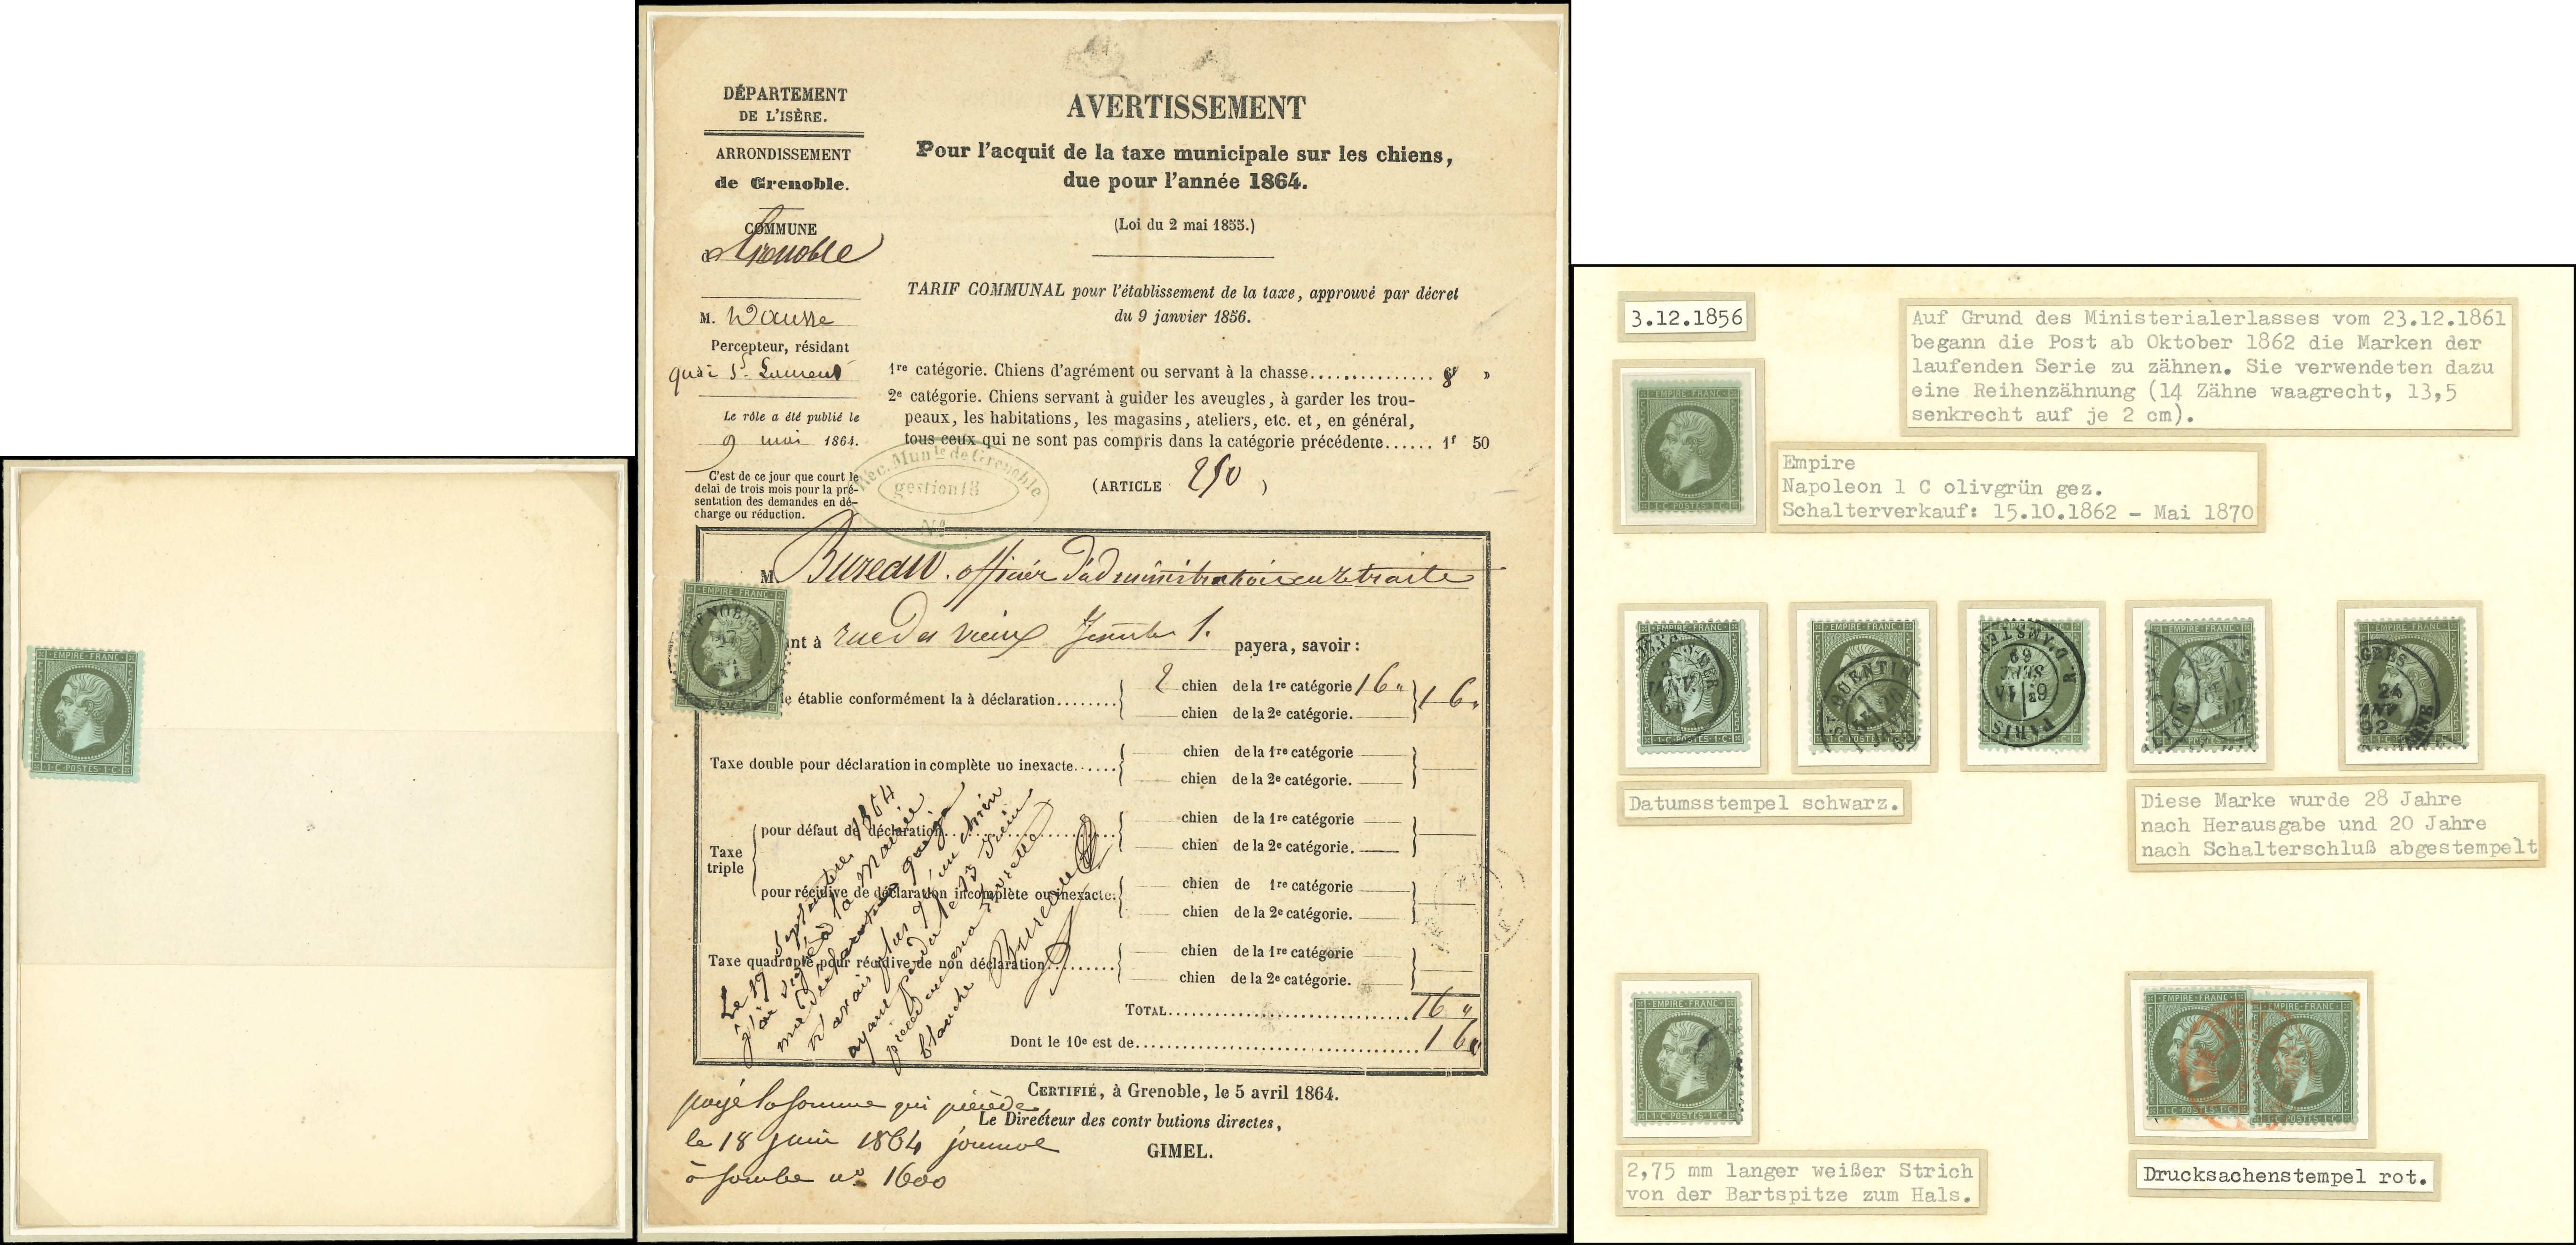 EMPIRE FRANC
1·C·POSTES·1·C
DÉPARTEMENT
DE L'ISÈRE.
ARRONDISSEMENT
de Grenoble.
COMMUNE
Grenoble
M.
Percepteur, résidant
quai St Laurent
Le rôle a été publié le
9 mai 1864.
C'est de ce jour que court le
delai de trois mois pour la pré-
sentation des demandes en dé-
charge ou réduction.
AVERTISSEMENT
Pour l'acquit de la taxe municipale sur les chiens,
due pour l'année 1864.
(Loi du 2 mai 1855.)
TARIF COMMUNAL pour l'établissement de la taxe, approuvé par décret
du 9 janvier 1856.
1re catégorie. Chiens d'agrément ou servant à la chasse............... 8 »
2e catégorie. Chiens servant à guider les aveugles, à garder les trou-
peaux, les habitations, les magasins, ateliers, etc. et, en général,
tous ceux qui ne sont pas compris dans la catégorie précédente...... 1f 50
Réc. Munle de Grenoble
gestion 18
No
(ARTICLE 250 )
M Bureau. officier d'administration en retraite
EMPIRE FRANC
nt à rue des vieux 1. payera, savoir :
le établie conformément la à déclaration........ 2 chien de la 1re catégorie 16 " 16 "
chien de la 2e catégorie.
Taxe double pour déclaration incomplète uo inexacte...... chien de la 1re catégorie
chien de la 2e catégorie.
Taxe
triple
pour défaut de déclaration........ chien de la 1re catégorie
chien de la 2e catégorie.
pour récidive de déclaration incomplète ou inexacte. chien de 1re catégorie
chien de la 2e catégorie.
Taxe quadruple pour récidive de non déclaration......... chien de la 1re catégorie
chien de la 2e catégorie.
TOTAL........ 16 "
Dont le 10e est de........ 1 60
Le 17 septembre 1864
j'ai signé à la Mairie
ma déclaration
n'avais plus qu'un chien
ayant perdu le 13 Juin
blanche
CERTIFIÉ, à Grenoble, le 5 avril 1864.
Le Directeur des contr butions directes,
GIMEL.
payé la somme qui précède
le 18 juin 1864 journal
à souche no 1600
3.12.1856
Auf Grund des Ministerialerlasses vom 23.12.1861
begann die Post ab Oktober 1862 die Marken der
laufenden Serie zu zähnen. Sie verwendeten dazu
eine Reihenzähnung (14 Zähne waagrecht, 13,5
senkrecht auf je 2 cm).
EMPIRE FRANC
1·C·POSTES·1·C
Empire
Napoleon 1 C olivgrün gez.
Schalterverkauf: 15.10.1862 - Mai 1870
EMPIRE FRANC
ST QUENTIN
PARIS
R. D'AMSTE
SEPT
69
24
JANV
92
Datumsstempel schwarz.
Diese Marke wurde 28 Jahre
nach Herausgabe und 20 Jahre
nach Schalterschluß abgestempelt
EMPIRE FRANC
1·C·POSTES·1·C
EMPIRE FRANC
EMPIRE FRANC
1·C·POSTES·1·C
1·C·POSTES·1·C
2,75 mm langer weißer Strich
von der Bartspitze zum Hals.
Drucksachenstempel rot.